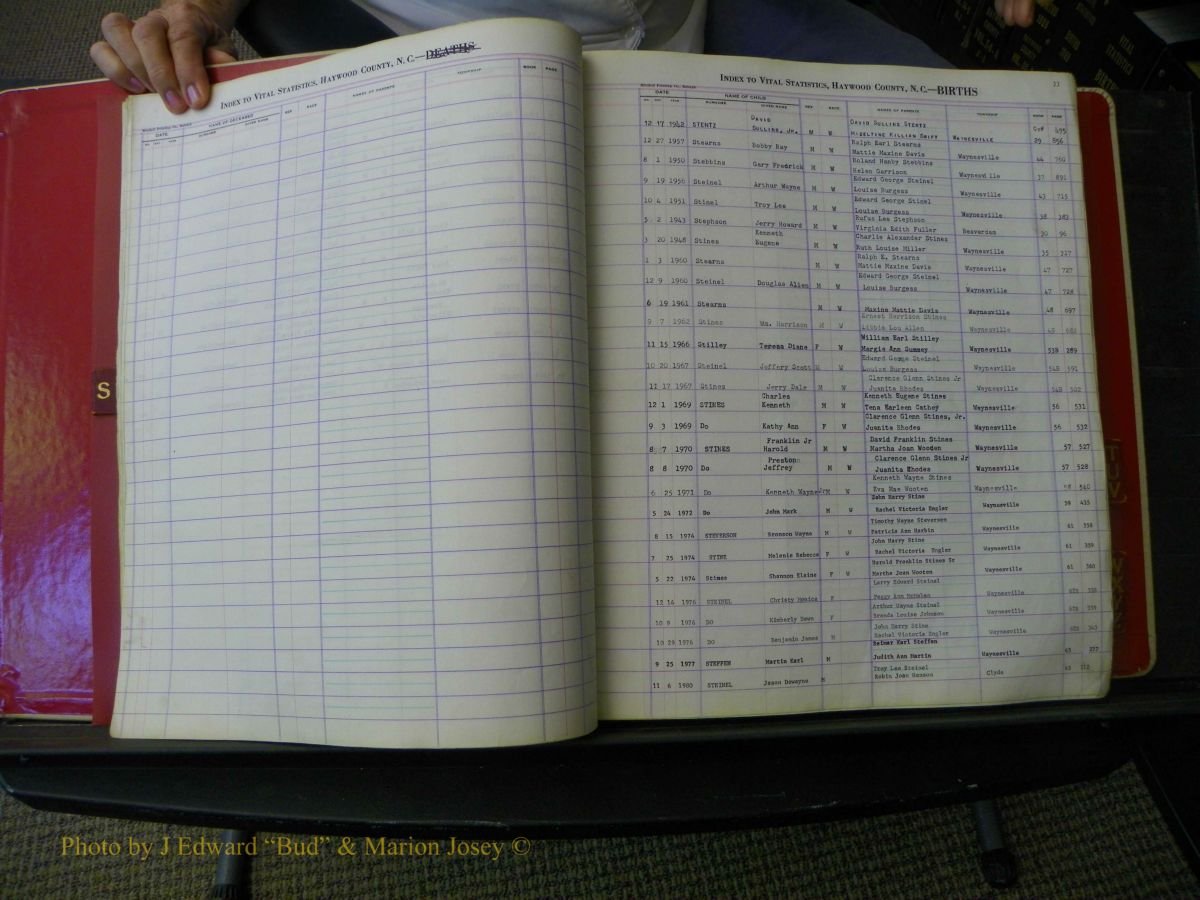 INDEX TO VITAL STATISTICS, HAYWOOD COUNTY, N. C.—DEATHS
DATE NAME OF DECEASED SEX RACE NAMES OF PARENTS TOWNSHIP BOOK PAGE
SURNAME GIVEN NAME
S
INDEX TO VITAL STATISTICS, HAYWOOD COUNTY, N. C.—BIRTHS
DATE NAME OF CHILD NAMES OF PARENTS TOWNSHIP BOOK PAGE
SURNAME GIVEN NAME SEX RACE
12 17 1942 STENTZ DAVID SULLINS, JR. M W DAVID SULLINS STENTZ
HAZELTINE KILLIAN SWIFT WAYNESVILLE 495
12 27 1957 Stearns Bobby Ray M W Ralph Earl Stearns 29 856
Mattie Maxine Davis Waynesville 44 760
8 1 1950 Stebbins Gary Fredrick M W Roland Hanby Stebbins
Helen Garrison Waynesville 37 891
9 19 1956 Steinel Arthur Wayne M W Edward George Steinel
Louise Burgess Waynesville 43 715
10 4 1951 Stinel Troy Lee M W Edward George Stinel
Louise Burgess Waynesville 38 383
5 2 1943 Stephson Jerry Howard M W Rufus Lee Stephson
Virginia Edith Fuller Beaverdam 30 96
3 20 1948 Stines Kenneth Eugene M W Charlie Alexander Stines
Ruth Louise Miller Waynesville 35 317
1 3 1960 Stearns M W Ralph E. Stearns
Mattie Maxine Davis Waynesville 47 727
12 9 1960 Steinel Douglas Allen M W Edward George Steinel
Louise Burgess Waynesville 47 728
6 19 1961 Stearns M W Maxine Mattie Davis Waynesville 48 697
9 7 1962 Stines Wm. Harrison M W Ernest Harrison Stines
Libbie Lou Allen Waynesville
11 15 1966 Stilley Teresa Diane F W William Earl Stilley
Margie Ann Summey Waynesville 53B 289
10 20 1967 Steinel Jeffery Scott M W Edward George Steinel
Louise Burgess Waynesville 54B 591
11 17 1967 Stines Jerry Dale M W Clarence Glenn Stines Jr
Juanita Rhodes Waynesville 54B 502
12 1 1969 STINES Charles Kenneth M W Kenneth Eugene Stines
Tena Earleen Cathey Waynesville 56 531
9 3 1969 Do Kathy Ann F W Clarence Glenn Stines, Jr.
Juanita Rhodes Waynesville 56 532
8 7 1970 STINES Franklin Jr Harold M W David Franklin Stines
Martha Joan Wooden Waynesville 57 527
8 8 1970 Do Preston Jeffrey M W Clarence Glenn Stines Jr
Juanita Rhodes Waynesville 57 528
6 25 1971 Do Kenneth Wayne Jr M W Kenneth Wayne Stines
Eva Mae Wooten Waynesville 58 540
5 24 1972 Do John Mark M W John Harry Stine
Rachel Victoria Engler Waynesville 59 435
8 15 1974 STEVERSON Bronson Wayne M W Timothy Wayne Steverson
Patricia Ann Harbin Waynesville 61 358
7 25 1974 STINE Melenie Rebecca F W John Harry Stine
Rachel Victoria Engler Waynesville 61 359
5 22 1974 Stines Shannon Elaine F W Harold Franklin Stines Sr
Martha Joan Wooten Waynesville 61 360
12 14 1976 STEINEL Christy Monica F Larry Edward Steinel
Peggy Ann McMahan Waynesville
10 9 1976 DO Kimberly Dawn F Arthur Wayne Steinel
Brenda Louise Johnson Waynesville
10 29 1976 DO Benjamin James M John Harry Stine
Rachel Victoria Engler Waynesville
9 25 1977 STEFFEN Martin Karl M Reimar Karl Steffen
Judith Ann Martin Waynesville 63 277
11 6 1980 STEINEL Jason Dewayne M Troy Lee Steinel
Robin Joan Hanson Clyde
VITAL
STATISTICS
BIRTHS
T
U
V
Photo by J Edward “Bud” & Marion Josey ©